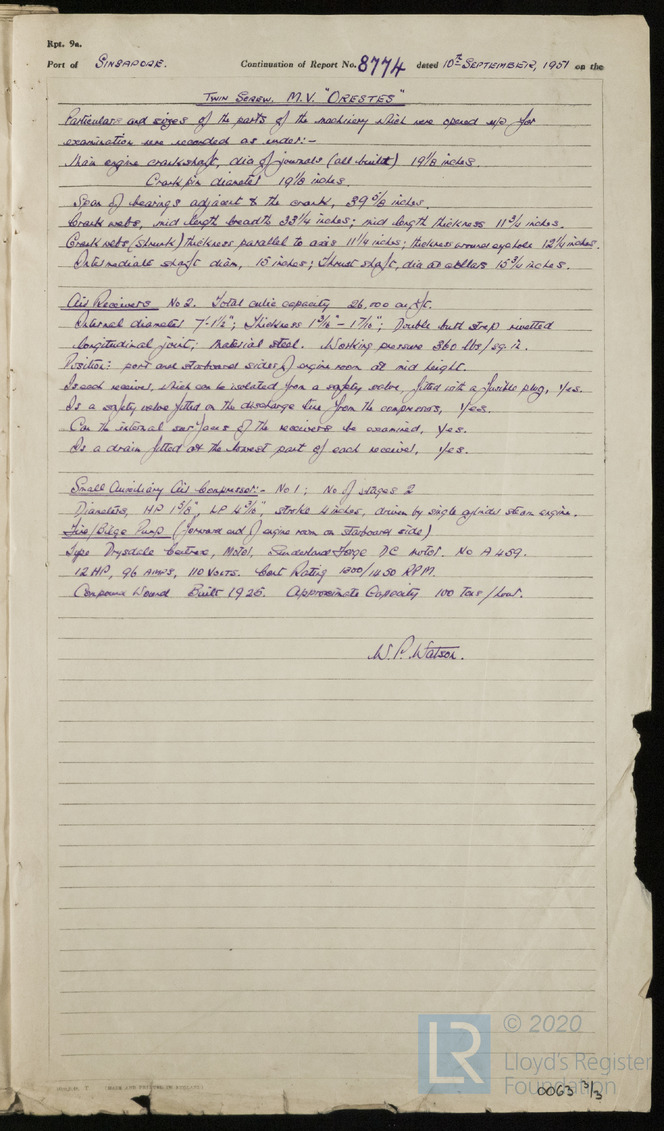 Rpt. 9a.
Port of SINGAPORE. Continuation of Report No. 8774 dated 10th SEPTEMBER, 1951 on the
TWIN SCREW. M.V. "ORESTES"
Particulars and sizes of the parts of the machinery which were opened up for
examination were recorded as under:-
Main engine crankshaft, dia of journals (all built) 19 1/8 inches.
Crank pin diameter 19 1/8 inches.
Span of bearings adjacent to the crank, 39 5/8 inches.
Crank webs, mid length breadth 33 1/4 inches; mid length thickness 11 3/4 inches.
Crank webs (shrunk) thickness parallel to axis 11 1/4 inches; thickness around eyehole 12 1/4 inches.
Intermediate shaft diam, 15 inches; Thrust shaft, dia at collars 15 3/4 inches.
Air Receivers No 2. Total cubic capacity 26,000 cu.ft.
Internal diameter 7'-1 1/2"; Thickness 1 9/16" - 1 7/16"; Double butt strap rivetted
longitudinal joint; Material steel. Working pressure 360 lbs/sq.in.
Position: port and starboard sides of engine room at mid height.
Is each receiver, which can be isolated from a safety valve, fitted with a fusible plug, Yes.
Is a safety valve fitted on the discharge line from the compressors, Yes.
Can the internal surfaces of the receivers be examined, Yes.
Is a drain fitted at the lowest part of each receiver, Yes.
Small Auxiliary Air Compressor:- No 1; No of stages 2
Diameters, HP 1 5/8", LP 4 3/16", stroke 4 inches, driven by single cylinder steam engine.
Fire/Bilge Pump (forward end of engine room on starboard side)
Type Drysdale Centrex, Motor, Sunderland Forge DC motor. No A 459.
12 HP, 96 AMPS, 110 VOLTS. Cont Rating 1200/1450 RPM.
Compound Wound Built 1925. Approximate Capacity 100 Tons/hour.
W. P. Watson.
(MADE AND PRINTED IN ENGLAND)
LR © 2020
Lloyd's Register
Foundation
0063 3/3